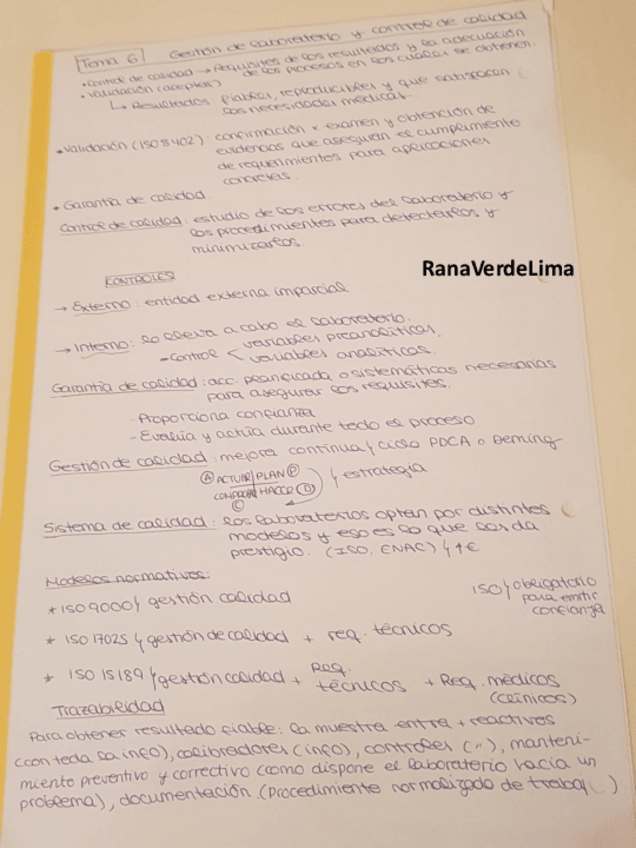 Tema 6 Gestión de laboratorio y control de calidad
• Control de calidad → Requisitos de los resultados y la adecuación
de los procesos en los cuales se obtienen.
• Validación (aceptar)
↳ Resultados fiables, reproducibles y que satisfacen
las necesidades médicas.
• Validación (ISO 8402): confirmación x examen y obtención de
evidencias que aseguran el cumplimiento
de requerimientos para aplicaciones
concretas.
• Garantía de calidad.
Control de calidad: estudio de los errores del laboratorio y
los procedimientos para detectarlos y
minimizarlos.
CONTROLES
RanaVerdeLima
→ Externo: entidad externa imparcial
→ Interno: lo lleva a cabo el laboratorio.
- Control < variables preanalíticas.
variables analíticas.
Garantía de calidad: acc. planificada o sistemáticas necesarias
para asegurar los requisitos.
- Proporciona confianza
- Evalúa y actúa durante todo el proceso
Gestión de calidad: mejora continua y ciclo PDCA o Deming
Ⓐ ACTUAR PLAN Ⓟ estrategia
COMPROBAR HACER Ⓓ
Ⓒ
Sistema de calidad: los laboratorios optan por distintos
modelos y eso es lo que les da
prestigio. (ISO, ENAC) ↑€
Modelos normativos:
* ISO 9000 gestión calidad
ISO obligatorio
para emitir
confianza
* ISO 17025 gestión de calidad + req. técnicos
* ISO 15189 gestión calidad + Req. técnicos + Req. médicos
(clínicos)
Trazabilidad
Para obtener resultado fiable: la muestra entra + reactivos
(con toda la info), calibradores (info), controles ("), manteni-
miento preventivo y correctivo (como dispone el laboratorio vacía un
problema), documentación (Procedimiento normalizado de trabaj )